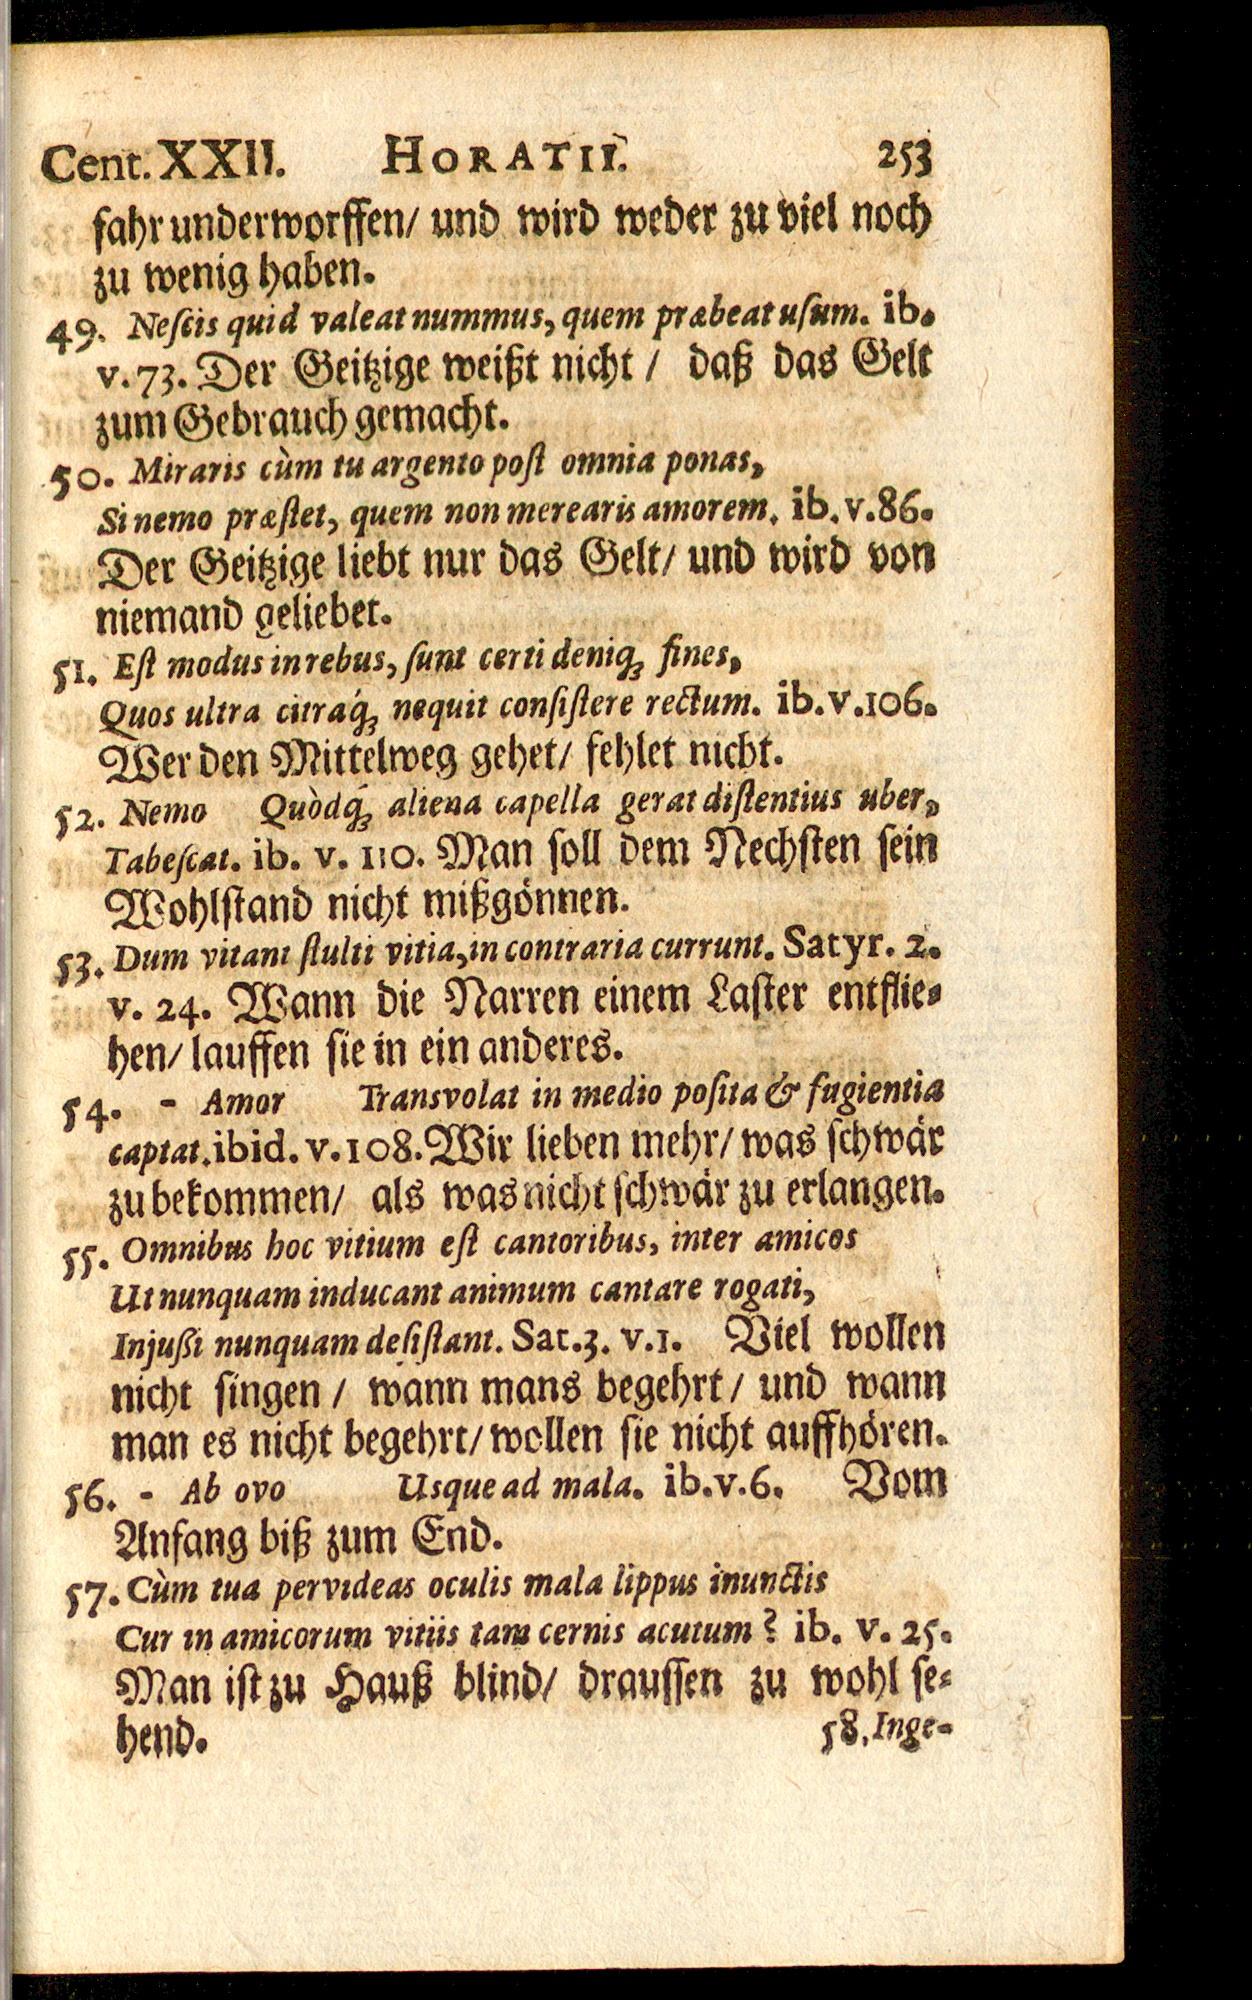 Cent. XXII. HORATII. 253
fahr underworffen/ und wird weder zu viel noch
zu wenig haben.
49. Neſcis quid valeat nummus, quem præbeat uſum. ib.
v. 73. Der Geitzige weißt nicht / daß das Gelt
zum Gebrauch gemacht.
50. Miraris cùm tu argento poſt omnia ponas,
Si nemo præſtet, quem non merearis amorem. ib. v. 86.
Der Geitzige liebt nur das Gelt/ und wird von
niemand geliebet.
51. Eſt modus in rebus, ſunt certi deniq́ꝫ fines,
Quos ultra citraq́ꝫ nequit conſiſtere rectum. ib. v. 106.
Wer den Mittelweg gehet/ fehlet nicht.
52. Nemo Quòdq́ꝫ aliena capella gerat diſtentius uber,
Tabeſcat. ib. v. 110. Man ſoll dem Nechſten ſein
Wohlſtand nicht mißgönnen.
53. Dum vitant ſtulti vitia, in contraria currunt. Satyr. 2.
v. 24. Wann die Narren einem Laſter entflie-
hen/ lauffen ſie in ein anderes.
54. - Amor Transvolat in medio poſita & fugientia
captat. ibid. v. 108. Wir lieben mehr/ was ſchwär
zu bekommen/ als was nicht ſchwär zu erlangen.
55. Omnibus hoc vitium eſt cantoribus, inter amicos
Ut nunquam inducant animum cantare rogati,
Injuſſi nunquam deſiſtant. Sat. 3. v. 1. Viel wollen
nicht ſingen / wann mans begehrt / und wann
man es nicht begehrt/ wollen ſie nicht auffhören.
56. - Ab ovo Usque ad mala. ib. v. 6. Vom
Anfang biß zum End.
57. Cùm tua pervideas oculis mala lippus inunctis
Cur in amicorum vitiis tam cernis acutum? ib. v. 25.
Man iſt zu Hauß blind/ drauſſen zu wohl ſe-
hend. 58. Inge-